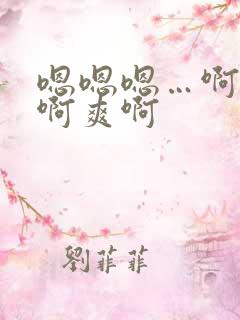 嗯嗯嗯…啊
啊爽啊
劉菲菲